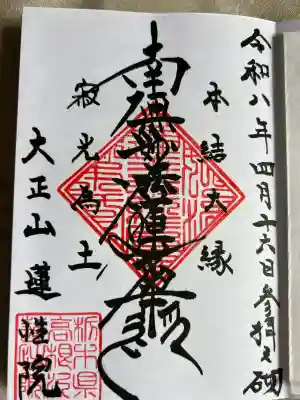 令和八年四月十六日参拝之砌
本結大縁
南無妙法蓮華経
寂光為土
大正山蓮性院
栃木県
高根沢